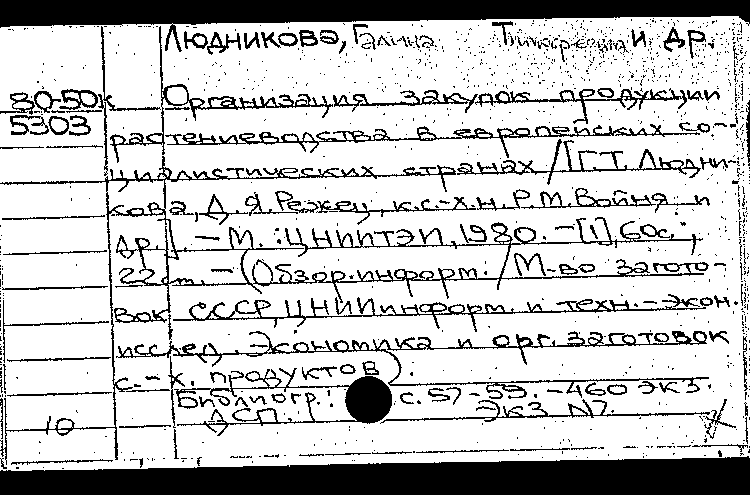 Людникова, Галина и др.
80-50к
5303
Организация закупок продукции
растениеводства в европейских со-
циалистических странах /[Г.Т. Людни-
кова, Д.Я. Режец, к.с.-х.н. Р.М. Война и
др.]. — М. : ЦНИИТЭИ, 1980. — [1], 60с.;
22 см. — (Обзор. информ. / М-во загото-
вок СССР, ЦНИИ информ. и техн.-экон.
исслед. Экономика и орг. заготовок
с.-х. продуктов).
Библиогр.: с. 57-59. — 460 экз.
ДСП. Экз. №7.
10